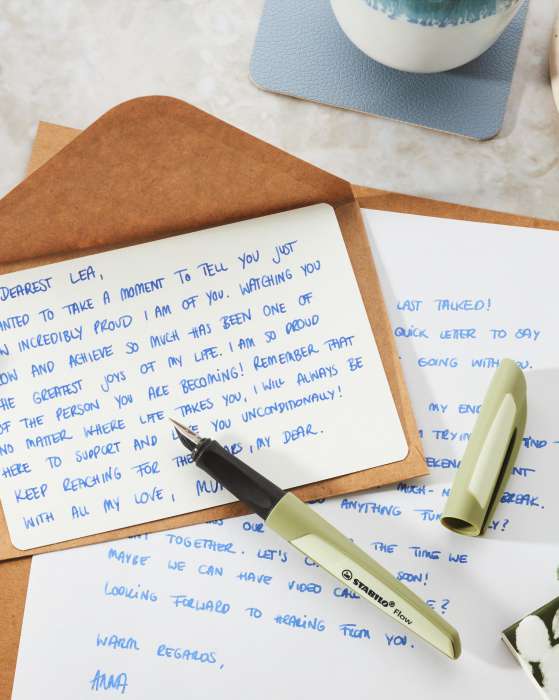 DEAREST LEA,
ANTED TO TAKE A MOMENT TO TELL YOU JUST
W INCREDIBLY PROUD I AM OF YOU. WATCHING YOU
OW AND ACHIEVE SO MUCH HAS BEEN ONE OF
HE GREATEST JOYS OF MY LIFE. I AM SO PROUD
OF THE PERSON YOU ARE BECOMING! REMEMBER THAT
NO MATTER WHERE LIFE TAKES YOU, I WILL ALWAYS BE
HERE TO SUPPORT AND YOU UNCONDITIONALLY!
KEEP REACHING FOR THE ARS, MY DEAR.
WITH ALL MY LOVE, MU
LAST TALKED!
QUICK LETTER TO SAY
GOING WITH YOU.
MY EN
M TRYIN
MUCH- N BREAK.
ANYTHING FUN Y?
OUR
TOGETHER. LET'S THE TIME WE
MAYBE WE CAN HAVE VIDEO CALL SOON!
LOOKING FORWARD TO HEARING FROM YOU.
WARM REGARDS,
ANNA
STABILO Flow